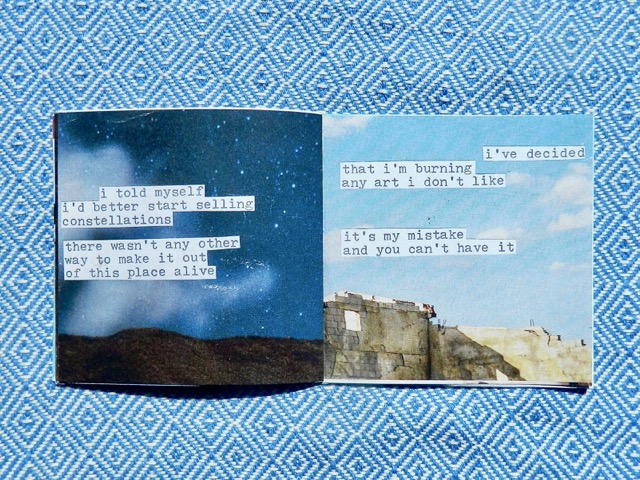 i told myself
i'd better start selling
constellations
there wasn't any other
way to make it out
of this place alive
i've decided
that i'm burning
any art i don't like
it's my mistake
and you can't have it